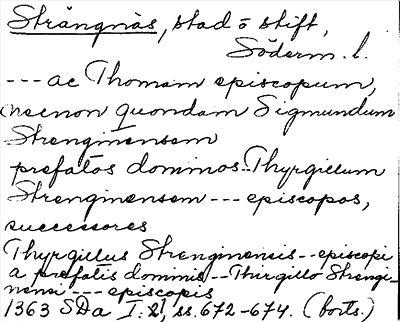 Strängnäs, stad o stift,
Söderm. l.
--- ac Thomam episcopum,
necnon quondam Sigmundum
Strenginensem
prefatos dominos -- Thyrgillum
Strenginensem --- episcopos,
successores
Thyrgillus Strenginensis -- episcopi
a prefatis dominis -- Thirgillo Strengi-
nensi --- episcopis
1363 SDa I: ss. 672-674. (forts.)